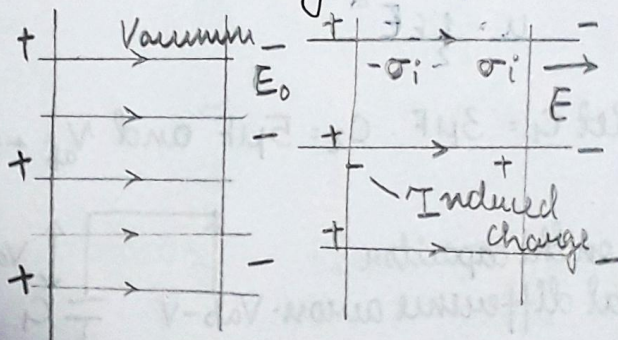 + Vacuum -
E₀
-
+
+ -
+ -
-σᵢ σᵢ
E
+ -
- +
Induced
charge
+ -